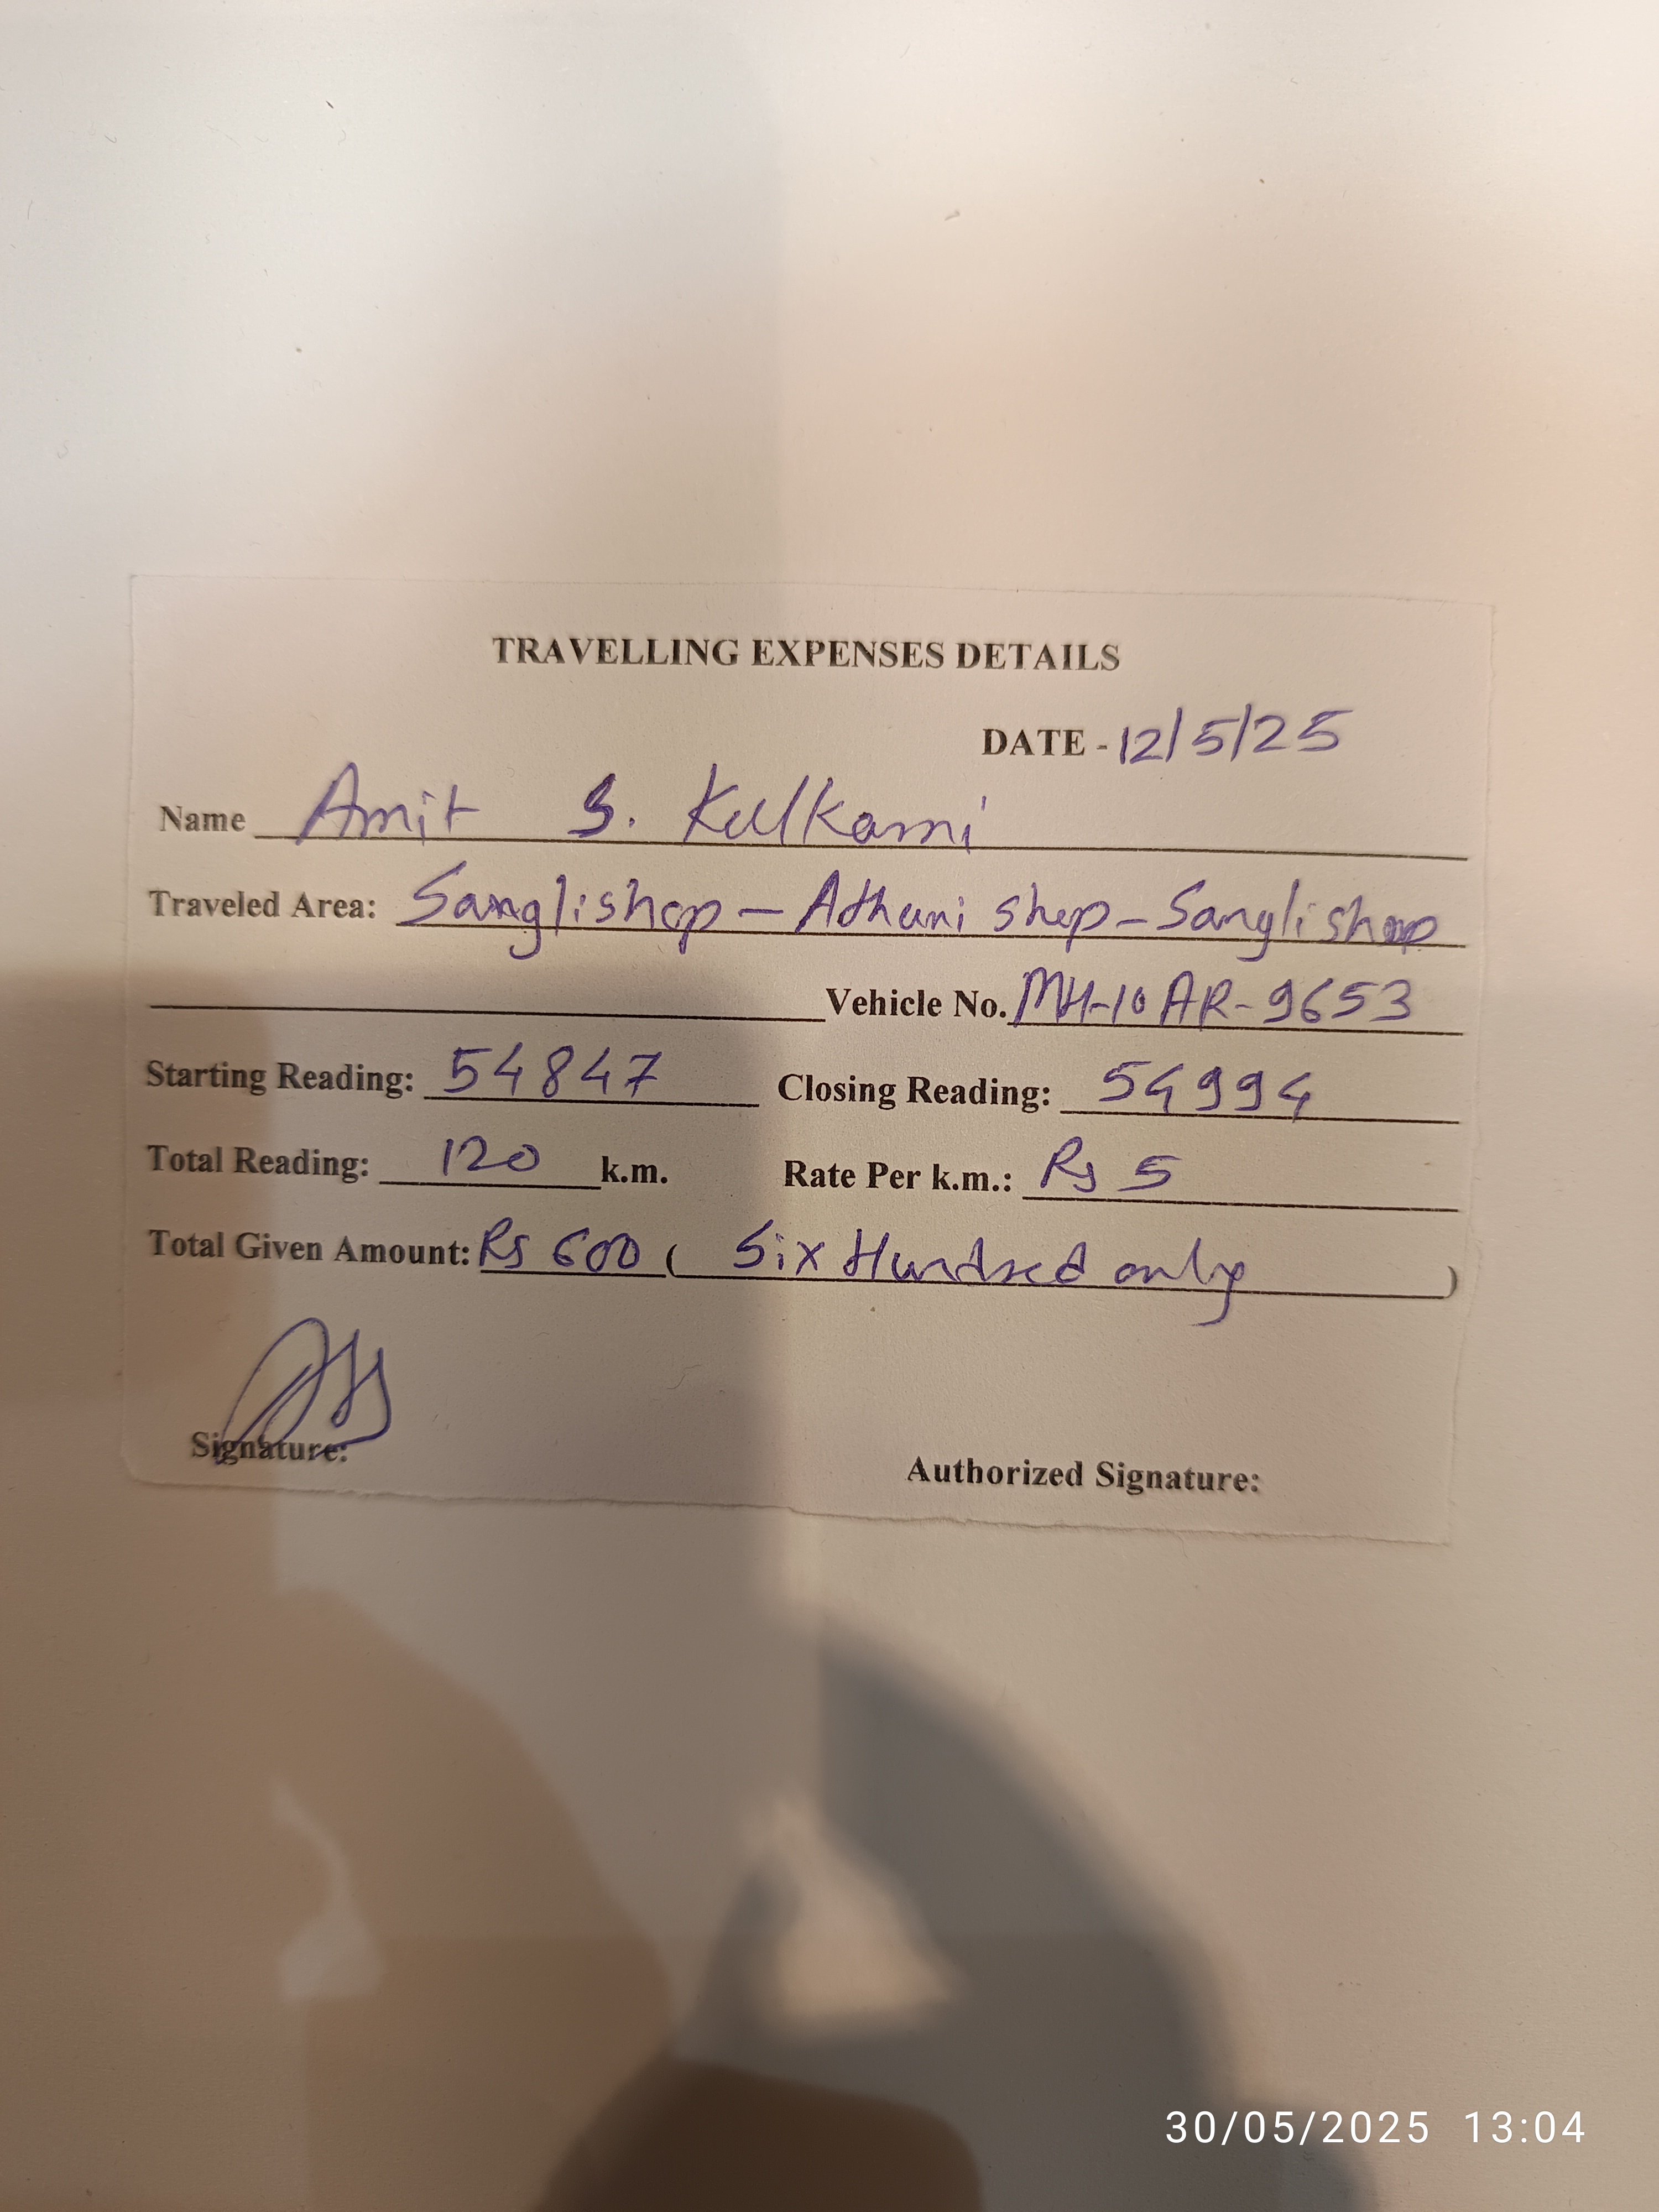 TRAVELLING EXPENSES DETAILS
DATE - 12/5/25
Name Amit S. Kulkarni
Traveled Area: Sanglishop - Athani shop - Sangli shop
Vehicle No. MH-10 AR-9653
Starting Reading: 54847 Closing Reading: 54994
Total Reading: 120 k.m. Rate Per k.m.: Rs 5
Total Given Amount: Rs 600 ( Six Hundred only )
Signature:
Authorized Signature:
30/05/2025 13:04